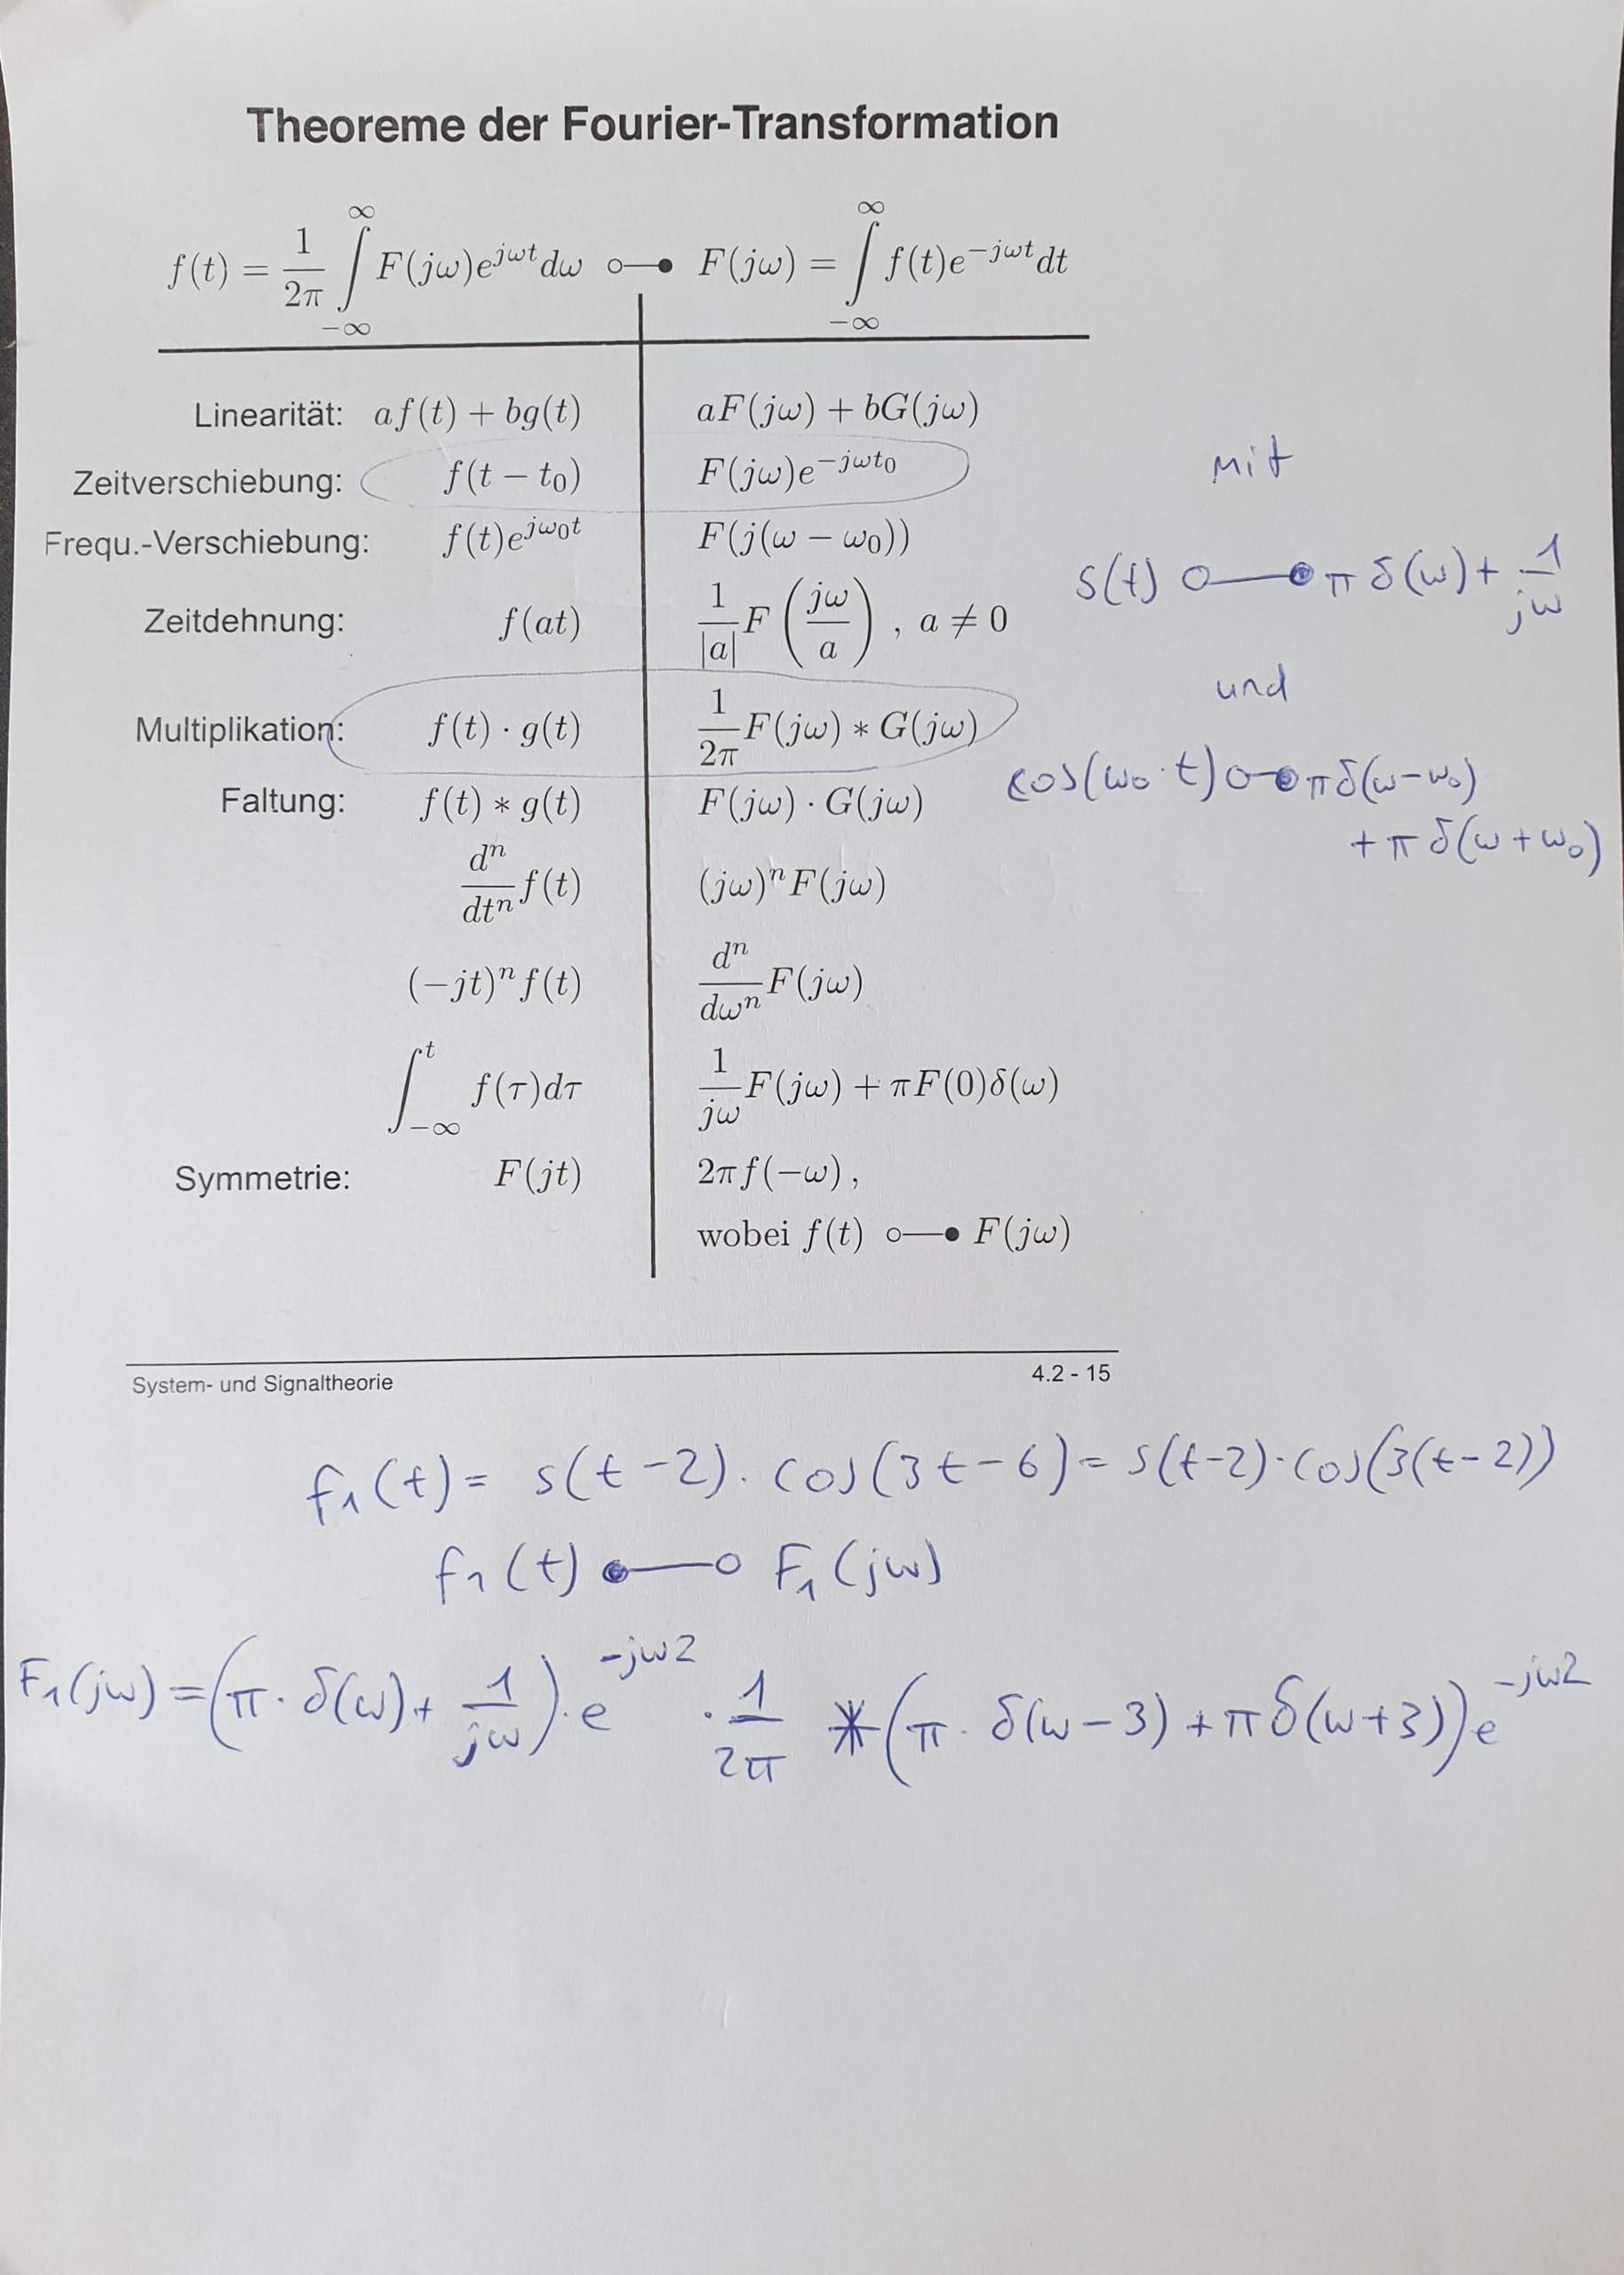 Theoreme der Fourier-Transformation
f(t) = 1/2π ∫_{-∞}^{∞} F(jω)e^{jωt}dω ○—● F(jω) = ∫_{-∞}^{∞} f(t)e^{-jωt}dt
Linearität: af(t) + bg(t) aF(jω) + bG(jω)
Zeitverschiebung: f(t − t₀) F(jω)e^{-jωt₀}
mit
Frequ.-Verschiebung: f(t)e^{jω₀t} F(j(ω − ω₀))
s(t) ○—● π δ(ω) + 1/jω
Zeitdehnung: f(at) 1/|a| F(jω/a) , a ≠ 0
und
Multiplikation: f(t) · g(t) 1/2π F(jω) ∗ G(jω)
cos(ω₀·t) ○—● πδ(ω−ω₀)
+ π δ(ω+ω₀)
Faltung: f(t) ∗ g(t) F(jω) · G(jω)
dⁿ/dtⁿ f(t) (jω)ⁿF(jω)
(−jt)ⁿf(t) dⁿ/dωⁿ F(jω)
∫_{-∞}^{t} f(τ)dτ 1/jω F(jω) + πF(0)δ(ω)
Symmetrie: F(jt) 2πf(−ω) ,
wobei f(t) ○—● F(jω)
System- und Signaltheorie 4.2 - 15
f₁(t) = s(t−2) · cos(3t−6) = s(t−2)·cos(3(t−2))
f₁(t) ●—○ F₁(jω)
F₁(jω) = (π · δ(ω) + 1/jω) · e^{-jω2} · 1/2π ∗ (π · δ(ω−3) + π δ(ω+3)) e^{-jω2}